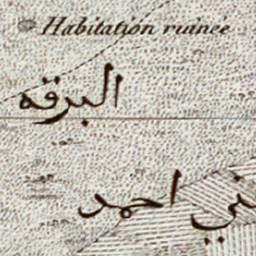 Habitation ruinée
البرقه
بني احمد